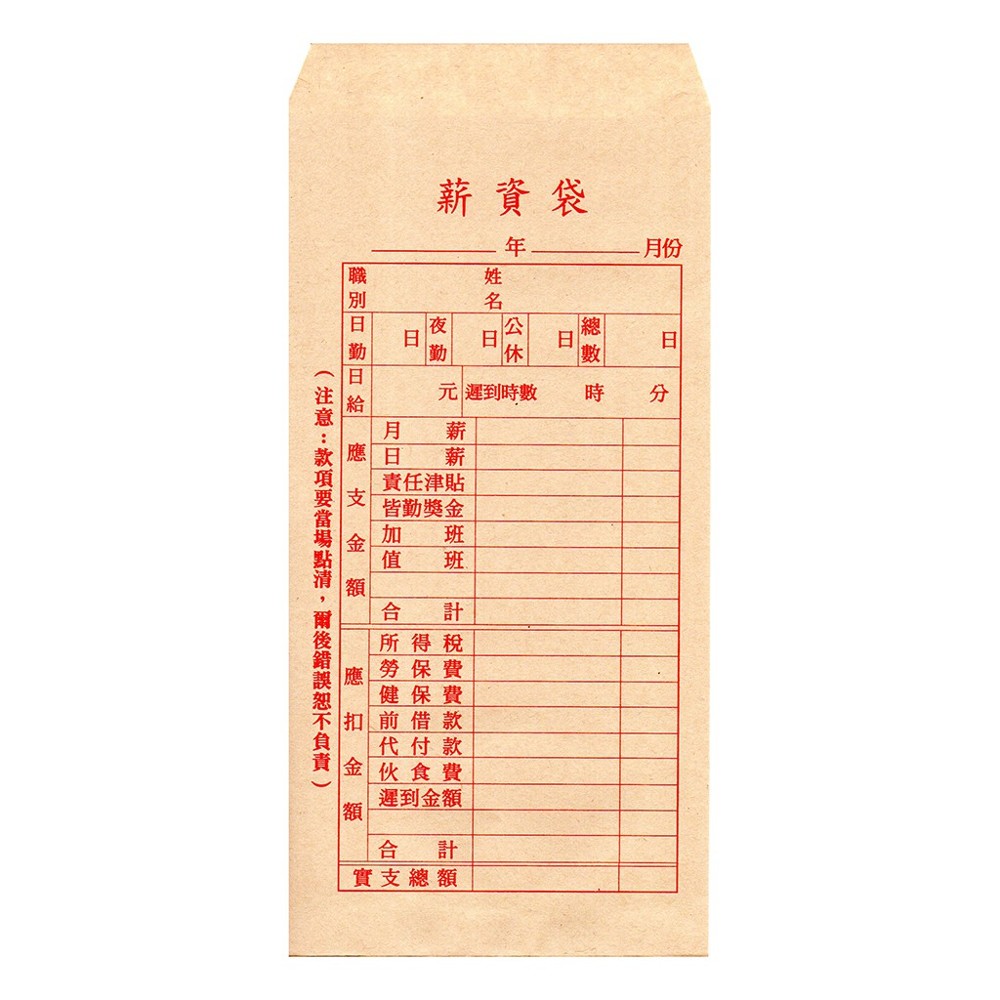 薪資袋
年 月份
職別 姓名
日勤 日 夜勤 日 公休 日 總數 日
日給 元 遲到時數 時 分
應支金額
月薪
日薪
責任津貼
皆勤獎金
加班
值班
合計
應扣金額
所得稅
勞保費
健保費
前借款
代付款
伙食費
遲到金額
合計
實支總額
（注意：款項要當場點清，爾後錯誤恕不負責）